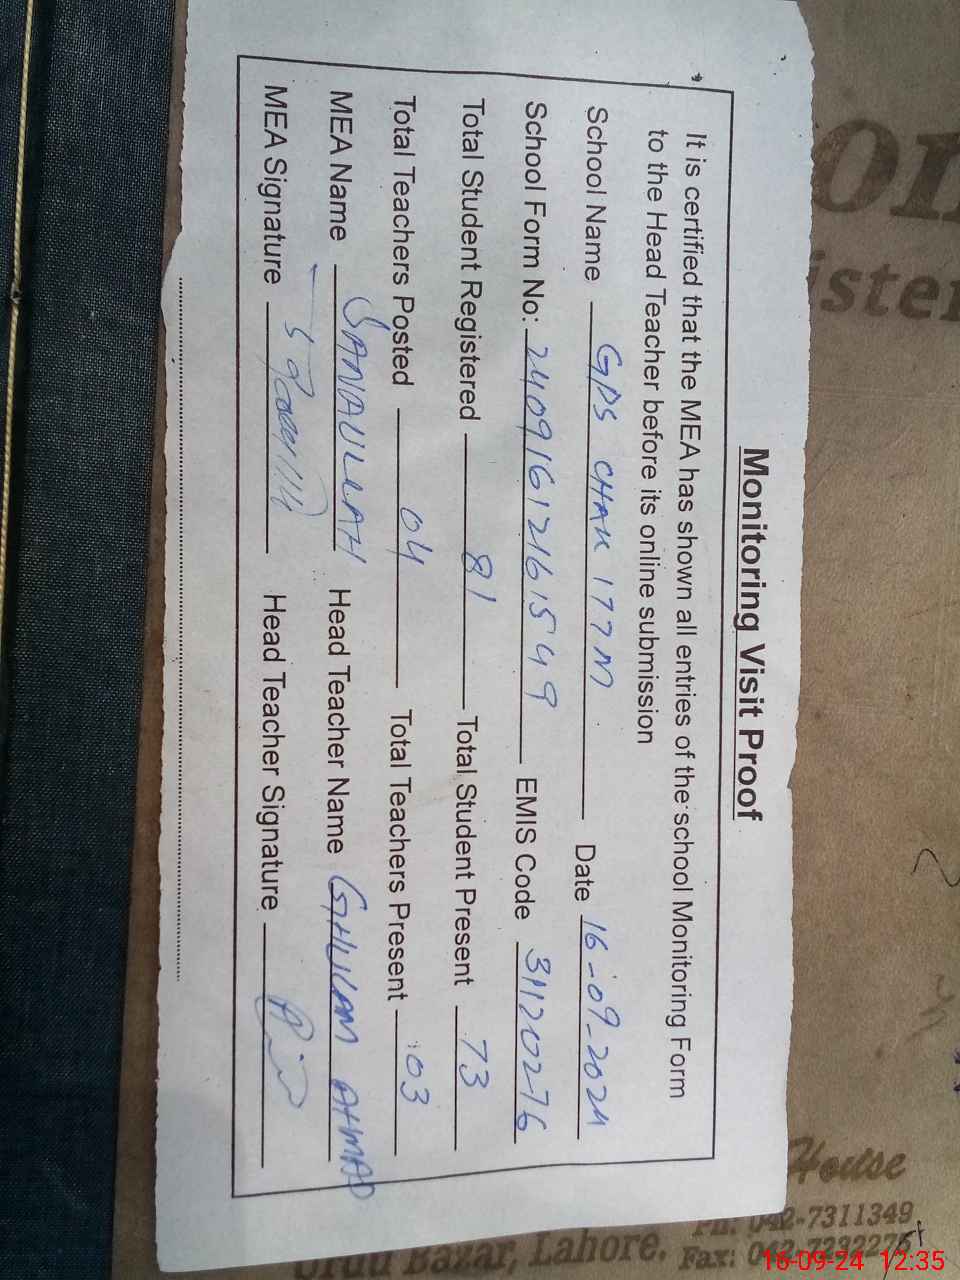 Monitoring Visit Proof
It is certified that the MEA has shown all entries of the school Monitoring Form
to the Head Teacher before its online submission
School Name GPS CHAK 177 M Date 16-09-2024
School Form No: 24091612161549 EMIS Code 31120276
Total Student Registered 81 Total Student Present 73
Total Teachers Posted 04 Total Teachers Present 03
MEA Name SANAULLAH Head Teacher Name GHULAM AHMAD
MEA Signature Head Teacher Signature
House
Ph: 042-7311349
Urdu Bazar, Lahore. Fax: 042-723227
16-09-24 12:35